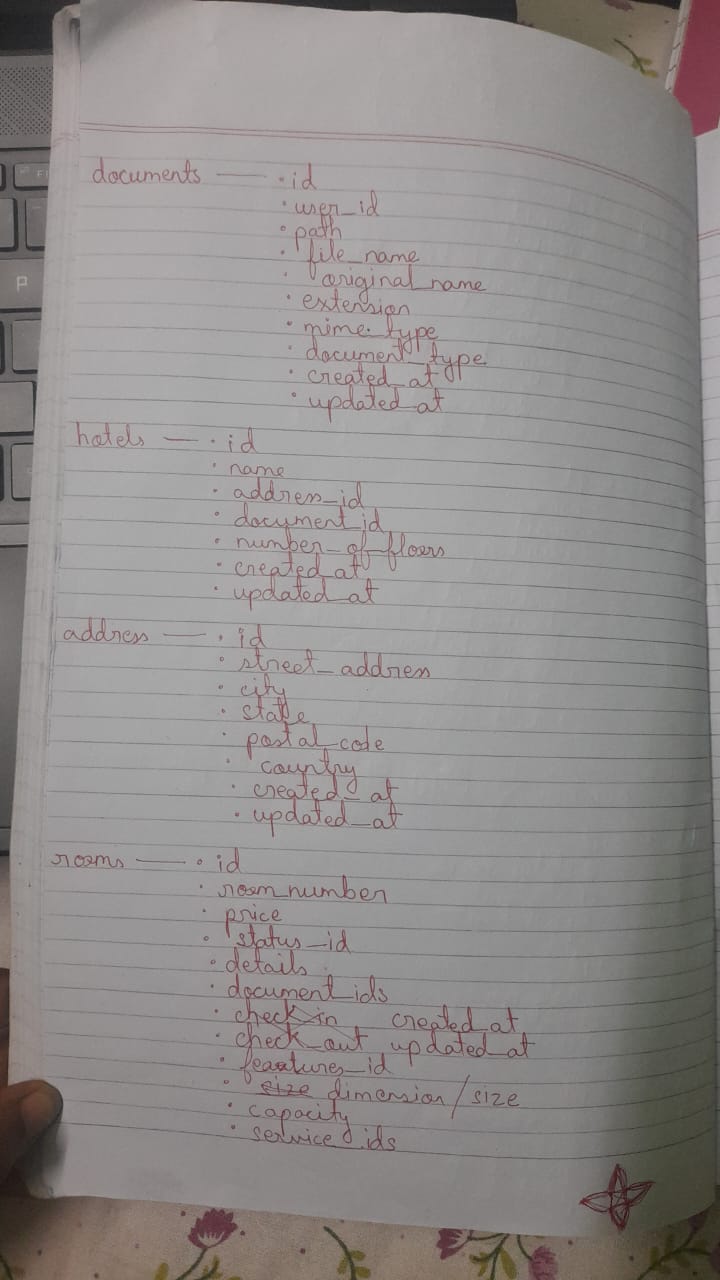 documents — · id
· user_id
· path
· file_name
· original_name
· extension
· mime_type
· document_type
· created_at
· updated_at
hotels — · id
· name
· address_id
· document_id
· number_of_floors
· created_at
· updated_at
address — · id
· street_address
· city
· state
· postal_code
· country
· created_at
· updated_at
rooms — · id
· room_number
· price
· status_id
· details
· document_ids
· check_in created_at
· check_out updated_at
· features_id
· size dimension/size
· capacity
· service_ids
P